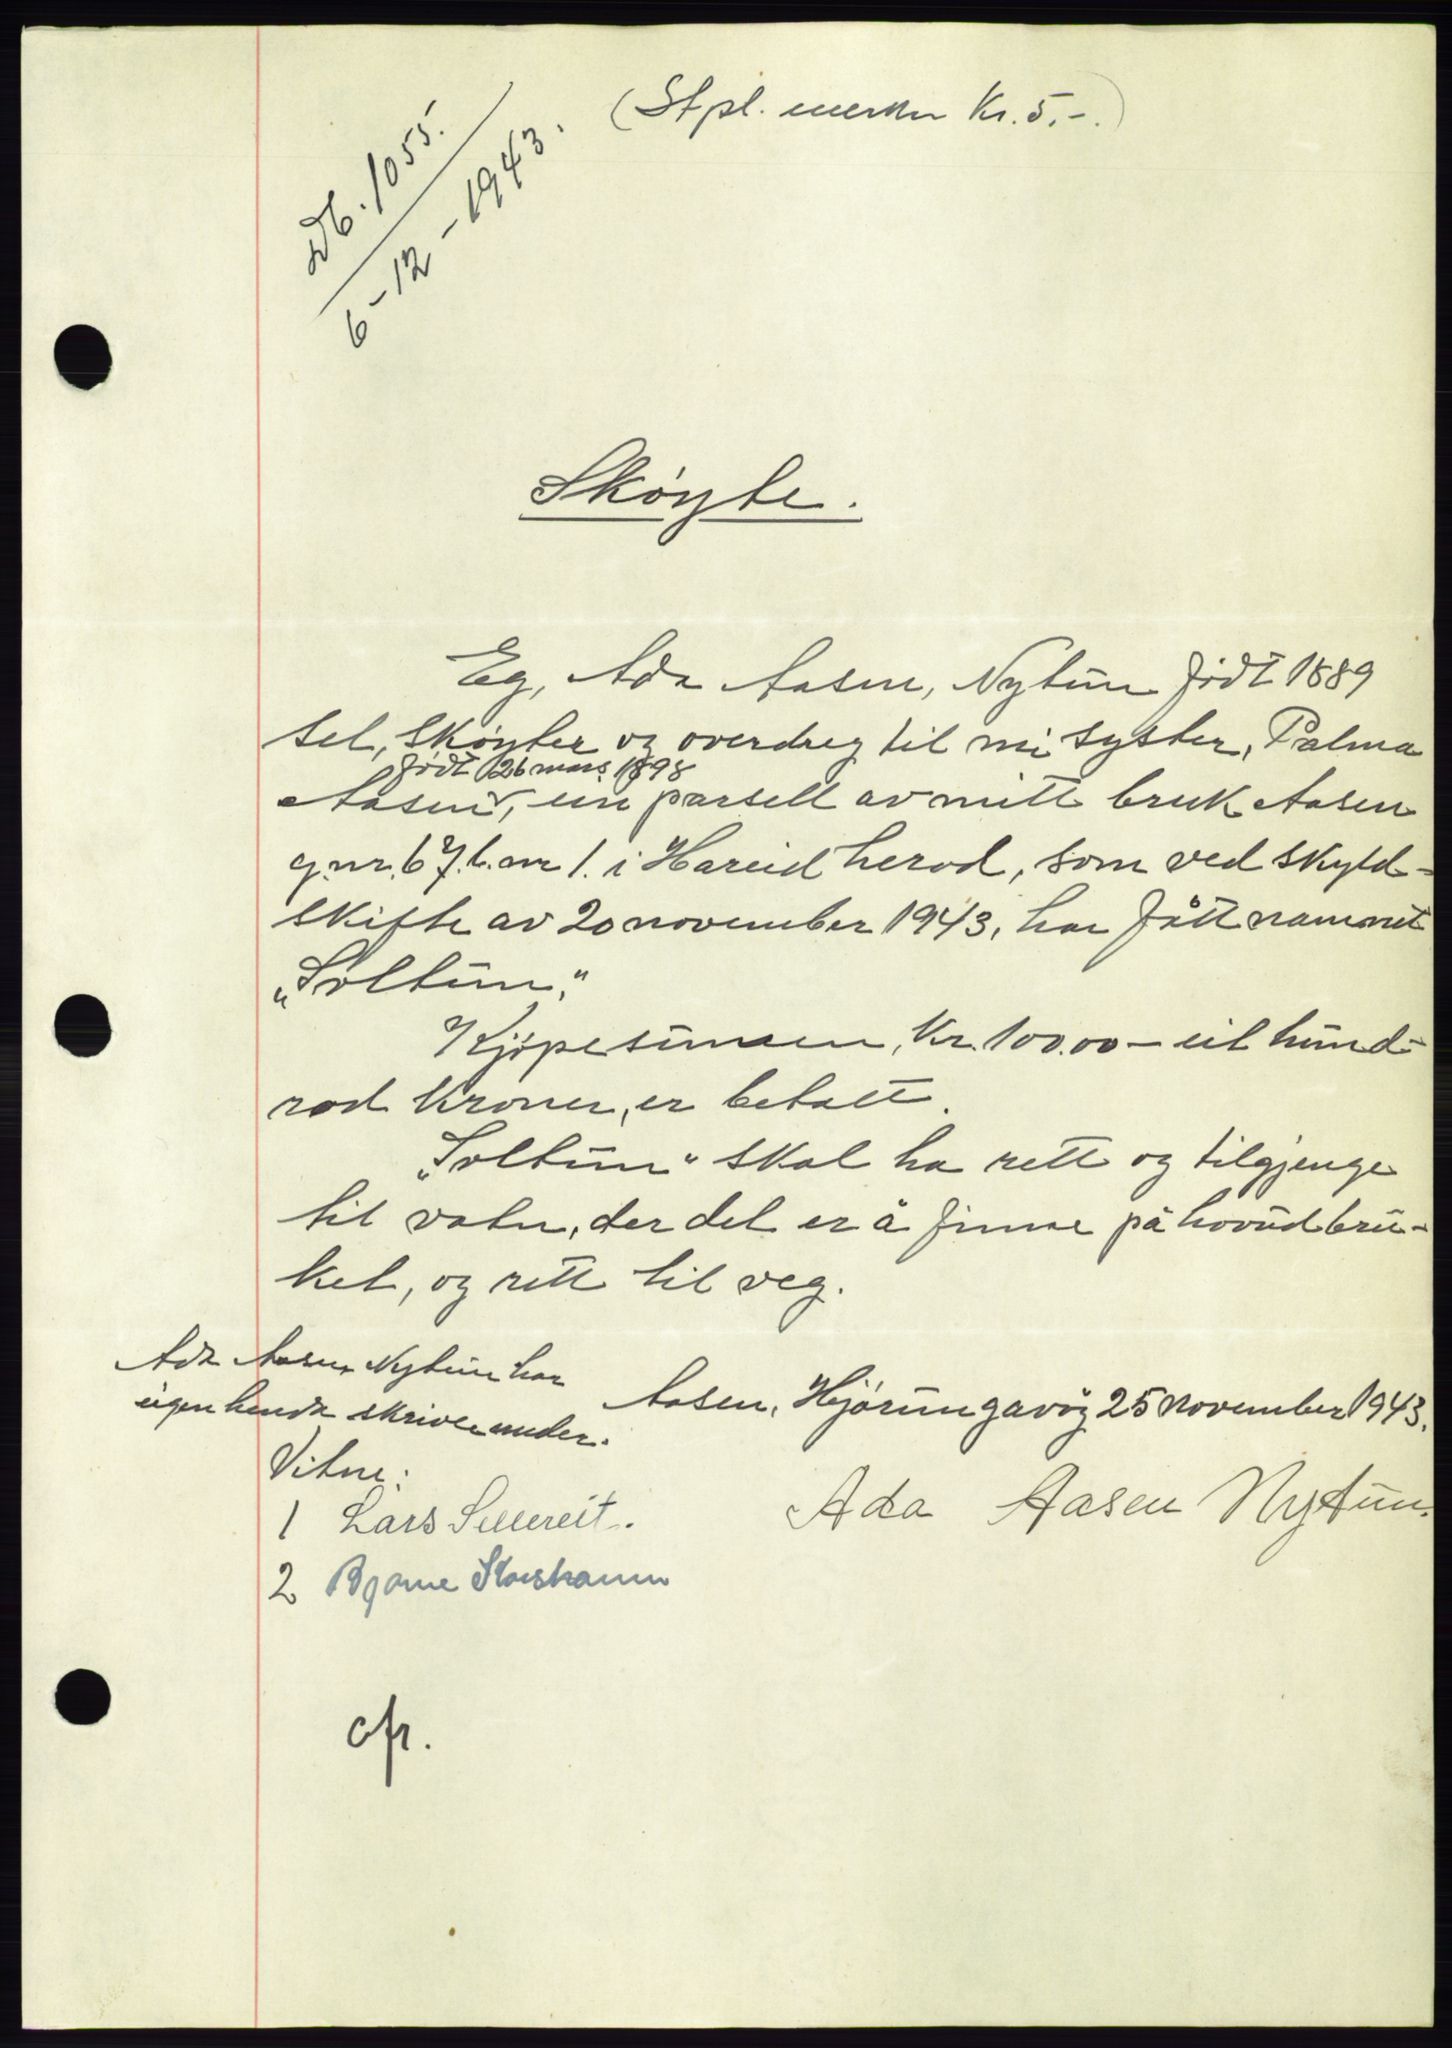 (Stpl. merker Kr. 5.-.)
Db. 1055.
6-12-1943.
Skøyte.
Eg, Ada Aasen, Nytun født 1889
sel, skøyter og overdreg til mi syster, Palma
født 26 mars 1898
Aasen, ein parsell av mitt bruk Aasen
g.nr. 67. b.nr 1. i Hareid herad, som ved skyld-
skifte av 20 november 1943, har fått namnet
„Soltun."
Kjøpesummen, Kr. 100.00 – eit hund-
rad kroner, er betalt.
„Soltun" skal ha rett og tilgjenge
til vatn, der det er å finne på hovudbru-
ket, og rett til veg.
Ada Aasen Nytun har
eigenhendk skrive under.
Aasen, Hjørungavåg 25 november 1943.
Vitne:
Ada Aasen Nytun.
1 Lars
2 Bjarne
cfr.